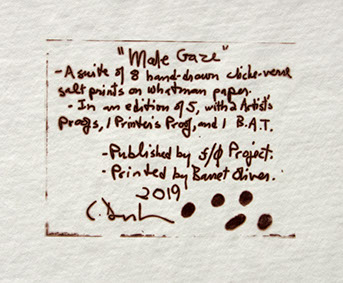 "Male Gaze"
-A suite of 8 hand-drawn cliche-verre
salt prints on whatman paper.
- In an edition of 5, with 2 Artist's
Proofs, 1 Printer's Proof, and 1 B.A.T.
-Published by s/ø Project.
-Printed by Barret Oliver.
2019